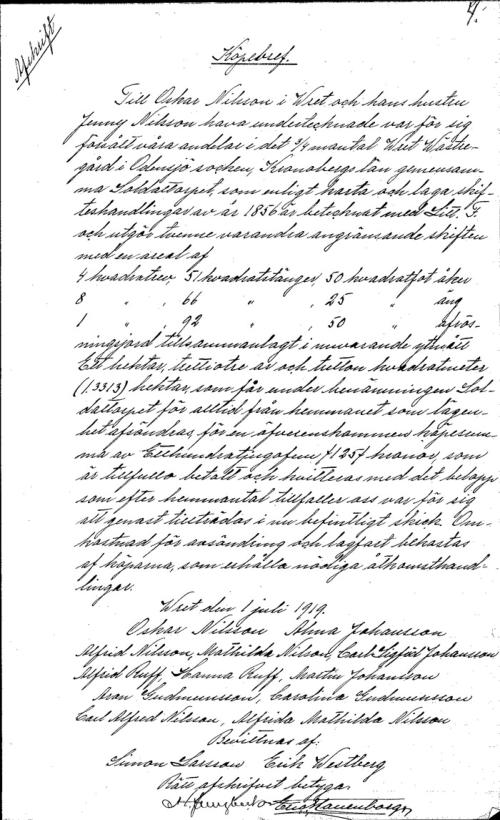 4.
Afskrift
Köpebref.
Till Oskar Nilson i Wret och hans hustru
Jenny Nilson hava undertecknade var för sig
försålt våra andelar i det 1/4 mantal Wret Wästre-
gård i Odensjö socken, Kronobergs län gemensam-
ma Soldattorpet, som enligt karta och laga skif-
teshandlingar av år 1856 är betecknat med Litt. F.
och utgör tvenne varandra angränsande skiften
med en areal af
4 kvadratrev, 51 kvadratstänger, 50 kvadratfot åker
8 " , 66 " , 25 " äng
1 " , 92 " , 50 " afrös-
ningsjord, tillsammanlagt i nuvarande ytmått
Ett hektar, trettiotre ar och tretton kvadratmeter
(1.3313) hektar, som får under benämningen Sol-
dattorpet för alltid från hemmanet som lägen-
het afsöndras, för en öfverenskommen köpesum-
ma av Etthundratjugofem /125/ kronor, som
är tillfullo betalt och kvitteras med det belopp
som efter hemmantal tillfaller oss var för sig
att genast tillträdas i nu befintligt skick. Om-
kostnad för avsöndring och lagfart bekostas
af köparna, som erhålla nödiga åtkomsthand-
lingar.
Wret den 1 juli 1919.
Oskar Nilsson Alma Johansson
Alfrid Nilsson, Mathilda Nilson, Carl Sigfrid Johansson
Alfrid Ruff, Hanna Ruff, Martin Johansson
Aron Gudmundsson, Carolina Gudmundsson
Carl Alfred Nilsson, Alfrida Mathilda Nilsson
Bevittnas af:
Simon Larsson Erik Westberg
Rätt afskrifvet betyga: